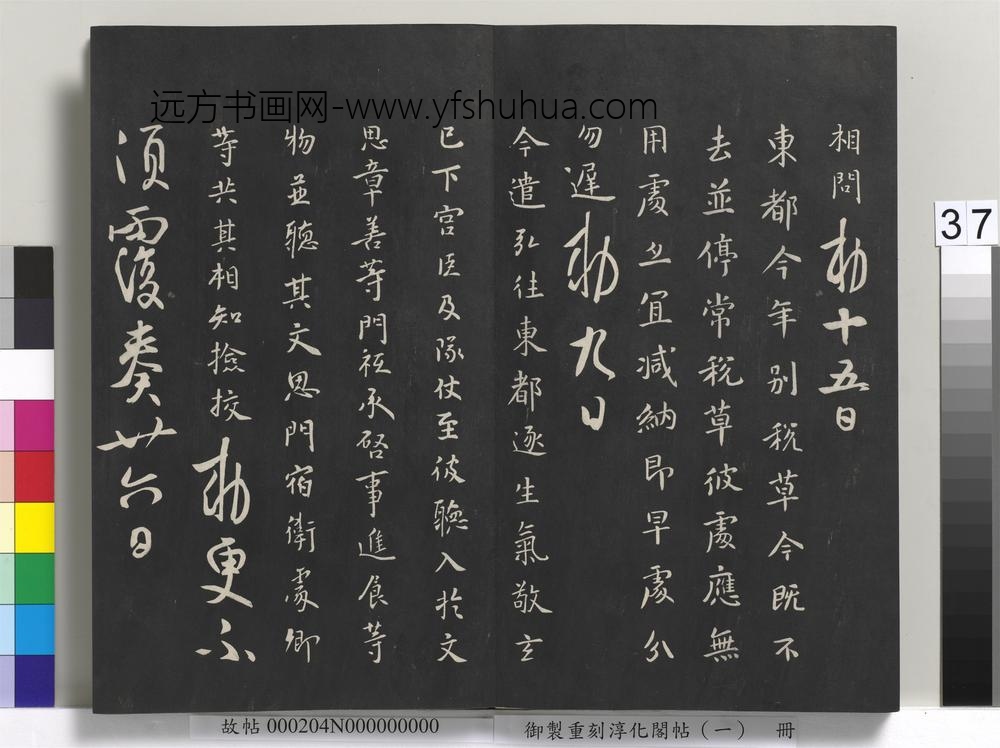 远方书画网-www.yfshuhua.com
相問勅十五日
東都今年别税草今既不
去並停常税草彼處應無
用處且宜減納即早處分
勿遲勅九日
今遣弘往東都逐生氣敬玄
已下宫臣及隊仗至彼聽入於文
思章善等門祗承啓事進食等
物並聽其文思門宿衛處卿
等共其相知撿挍勅更不
須覆奏廿六日
37
故帖 000204N000000000
御製重刻淳化閣帖(一) 冊